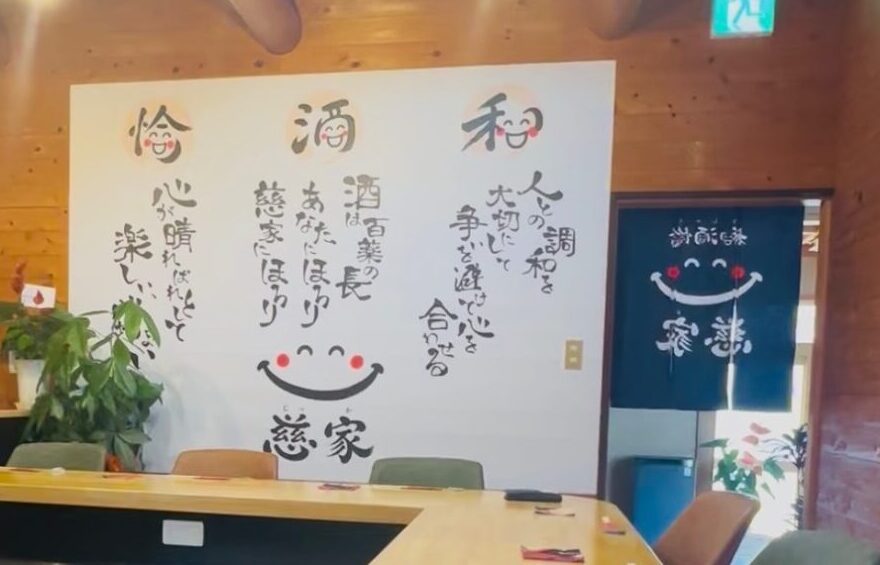 和
人との調和を
大切にして
争いを避けて心を
合わせる
酒
酒は百薬の長
あなたにほっこり
慈家にほっこり
慈家
恰
心が晴ればれとして
楽しい
和酒恰
慈家